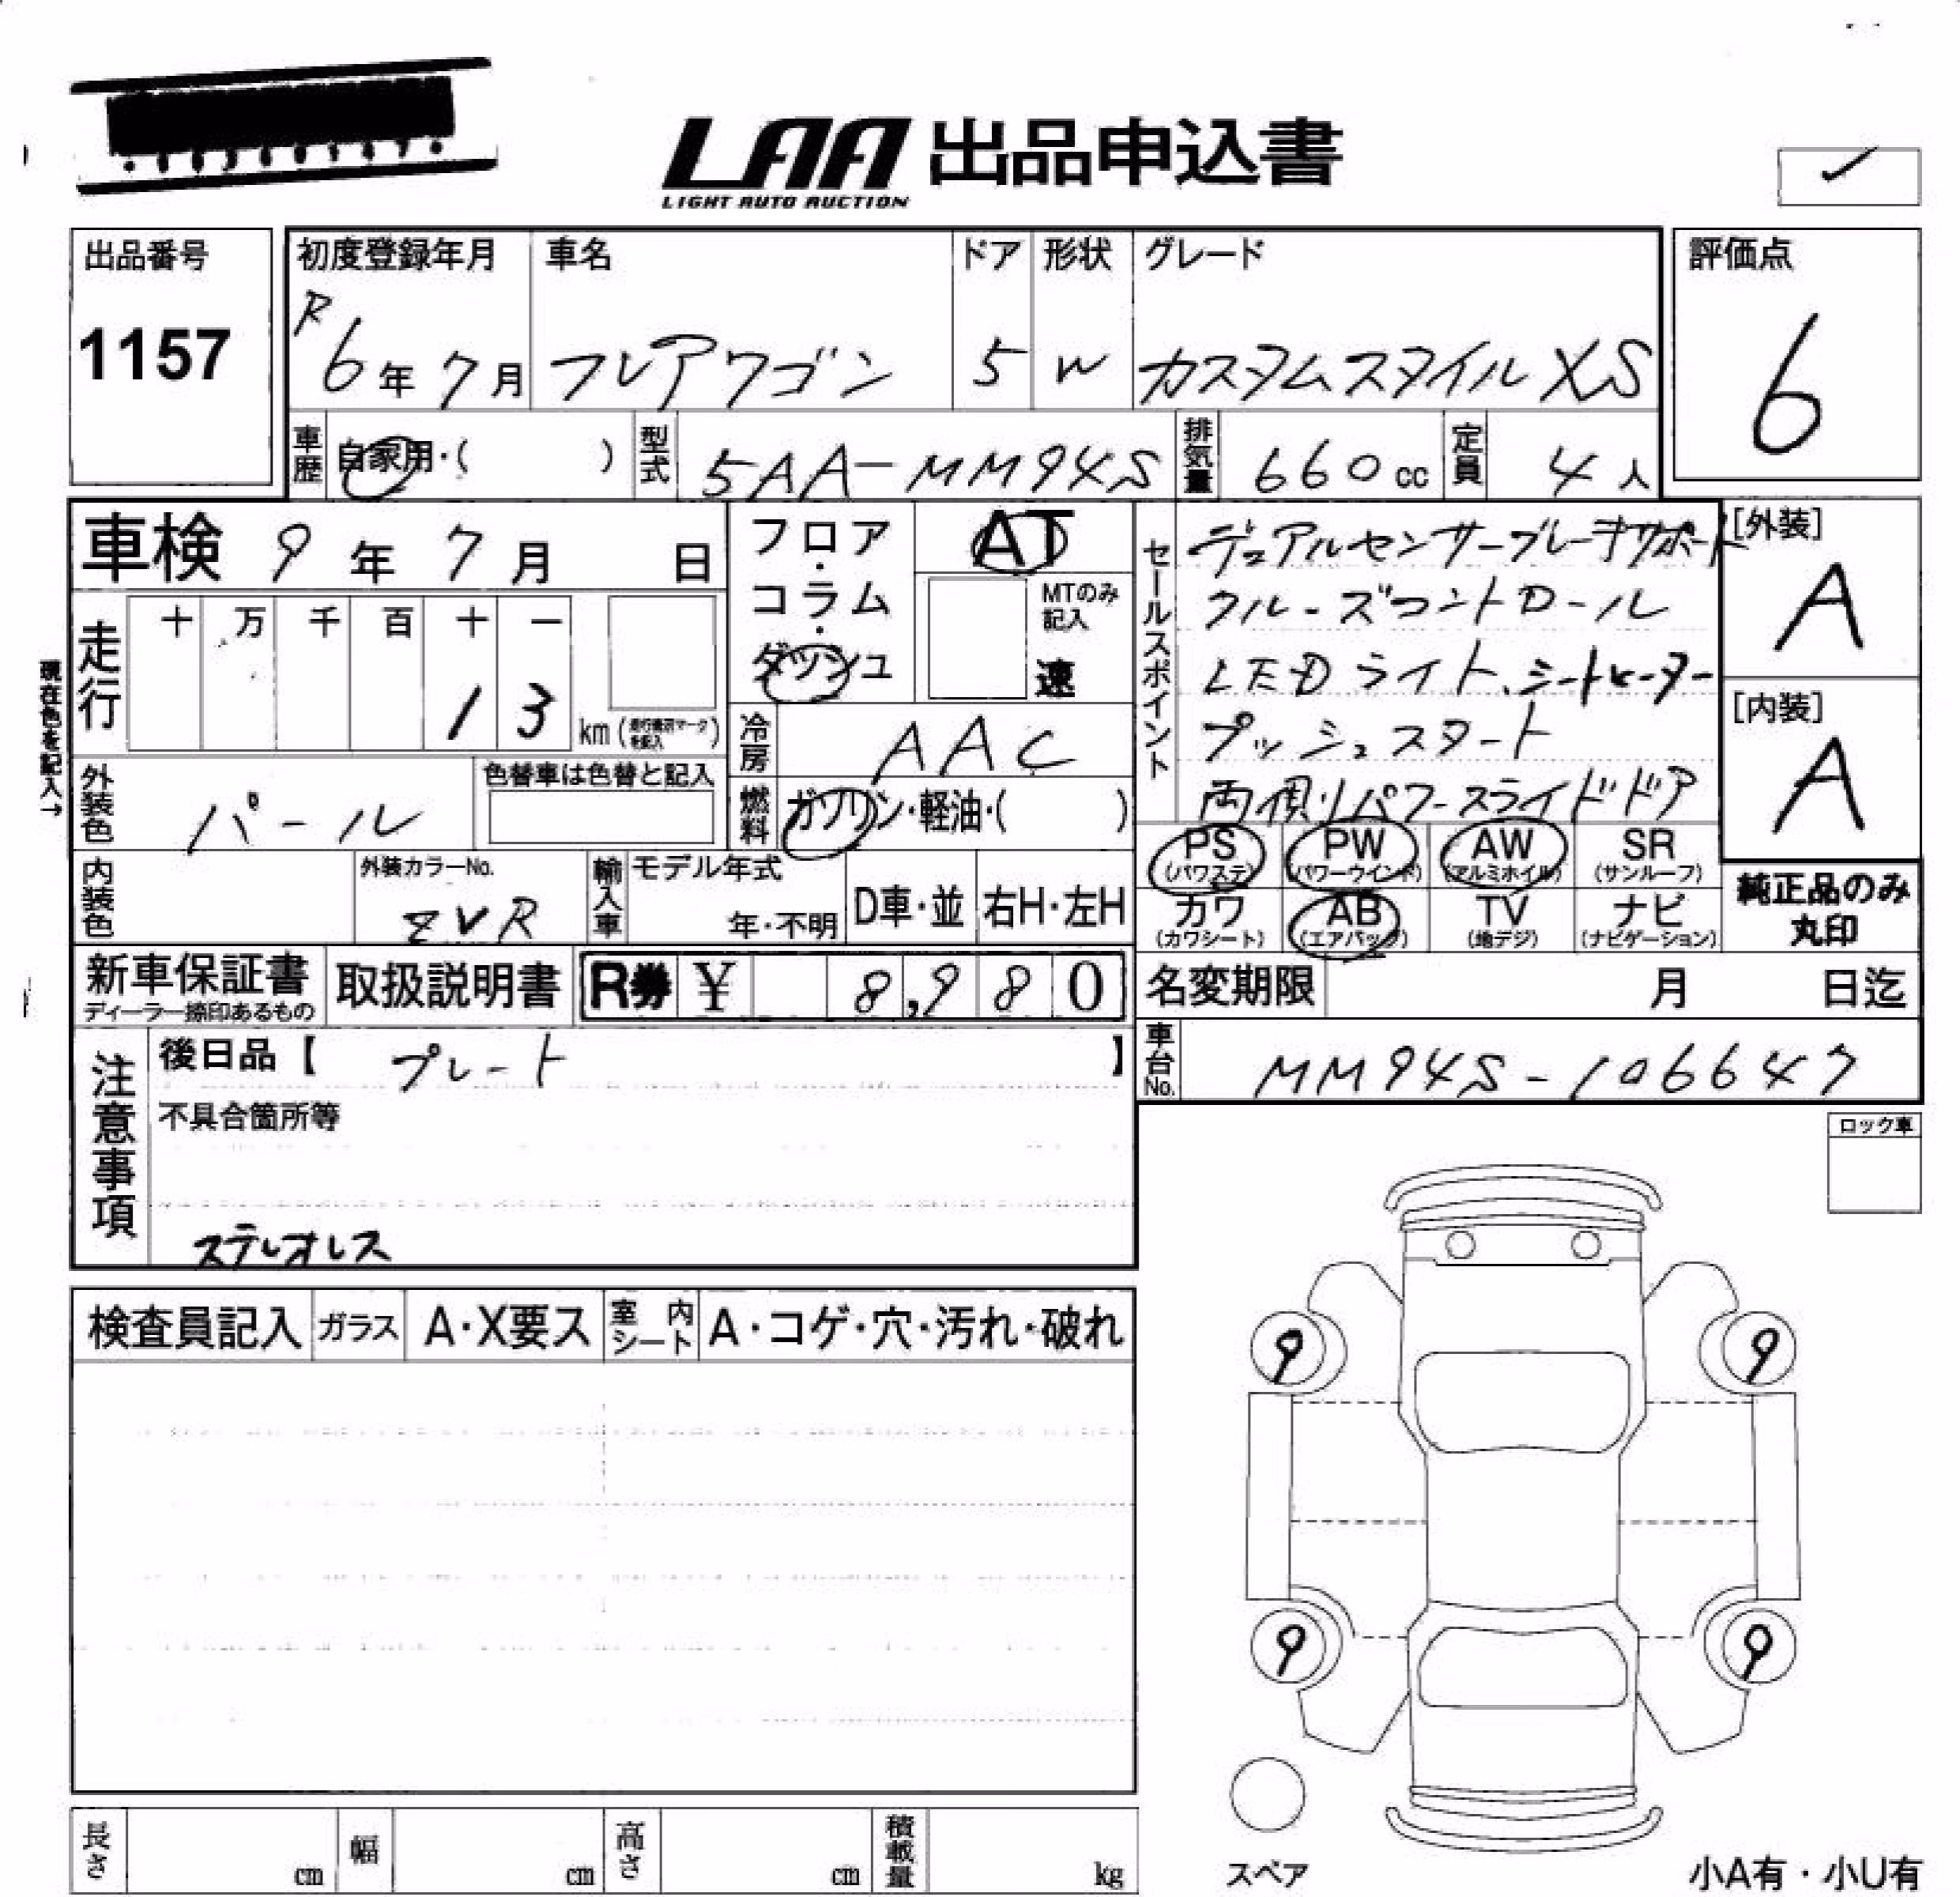 LAA 出品申込書
LIGHT AUTO AUCTION
出品番号
1157
初度登録年月 車名 ドア 形状 グレード
R6年7月 フレアワゴン 5 W カスタムスタイルXS
評価点
6
車歴 自家用・( ) 型式 5AA-MM94S 排気量 660cc 定員 4人
車検 9年7月 日
フロア・コラム・ダッシュ
AT
MTのみ記入
速
セールスポイント
デュアルセンサーブレーキサポート
クルーズコントロール
LEDライト、シートヒーター
プッシュスタート
両側パワースライドドア
[外装]
A
[内装]
A
走行 十 万 千 百 十 一
13 km
現在色を記入→
冷房 AAC
外装色 パール
色替車は色替と記入
燃料 ガソリン・軽油・( )
PS (パワステ) PW (パワーウインド) AW (アルミホイル) SR (サンルーフ)
カワ (カワシート) AB (エアバック) TV (地デジ) ナビ (ナビゲーション)
純正品のみ
丸印
内装色 外装カラーNo. ZVR
輸入車 モデル年式 年・不明 D車・並 右H・左H
新車保証書 ディーラー捺印あるもの 取扱説明書 R券 ¥ 8,980
名変期限 月 日迄
車台No. MM94S-106647
注意事項
後日品【 プレート 】
不具合箇所等
ステレオレス
ロック車
検査員記入 ガラス A・X要ス 室内シート A・コゲ・穴・汚れ・破れ
9 9
9 9
スペア
長さ cm 幅 cm 高さ cm 積載量 kg
小A有・小U有